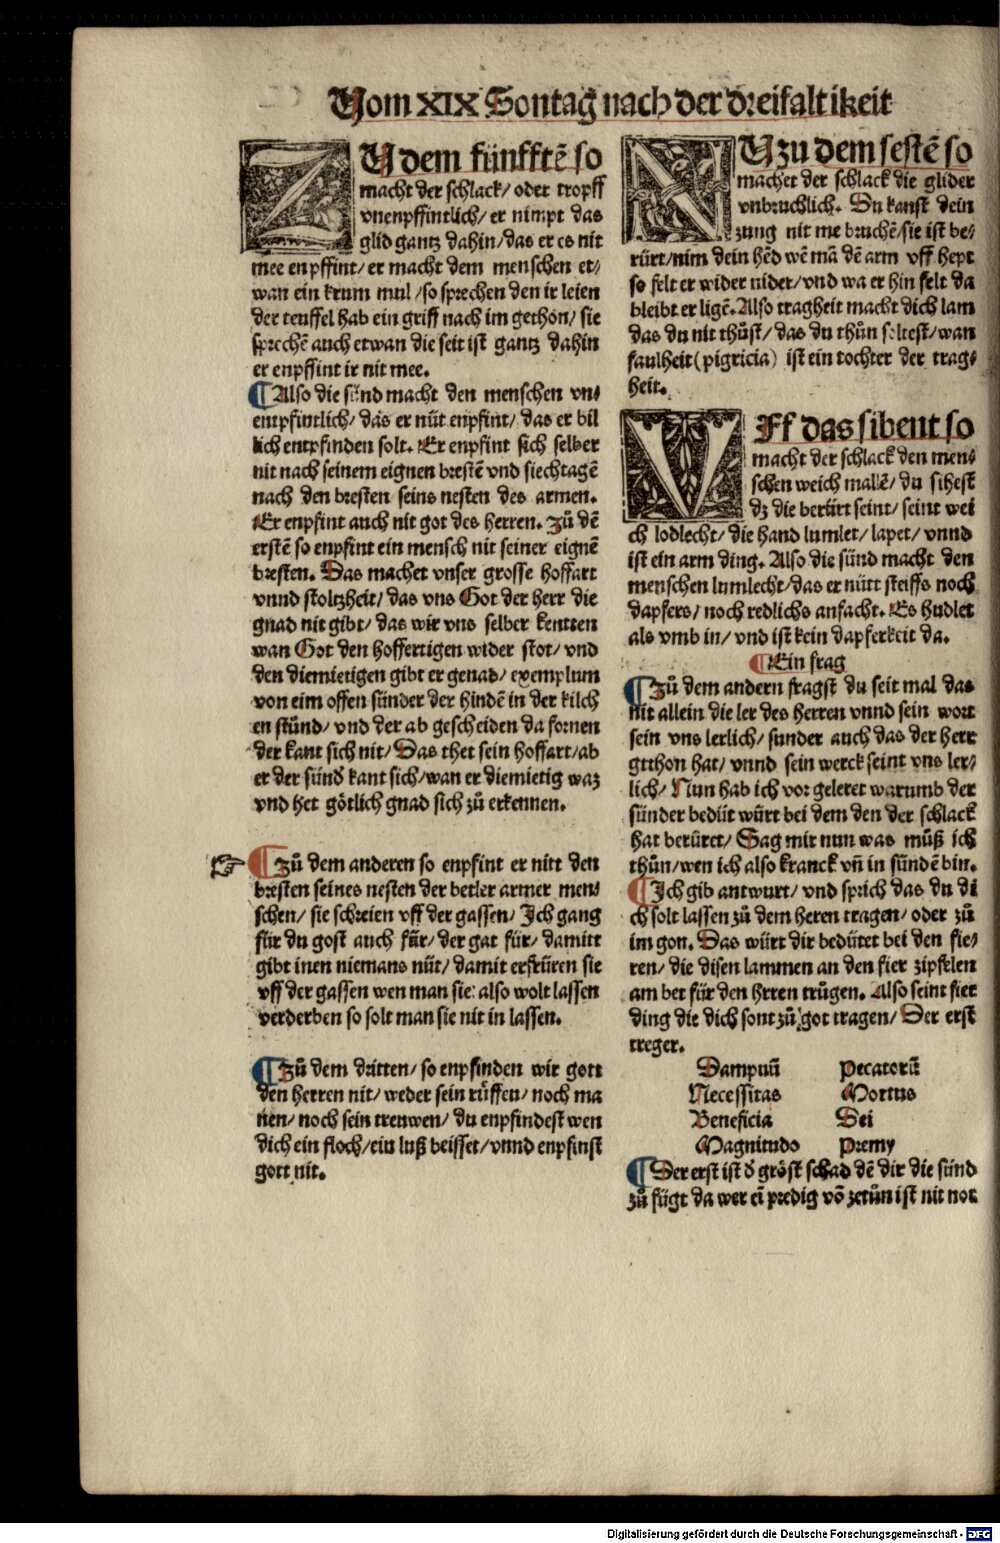 Vom XIX Sontag nach der dreifaltikeit
ZU dem fünfftē so
macht der schlack/ oder tropff
vnenpffintlich/ er nimpt das
glid gantz dahin/ das er es nit
mee enpffint/ er macht dem menschen et/
wan ein krum mul/ so sprechen den ir leien
der teuffel hab ein griff nach im gethon/ sie
sprechē auch etwan die seit ist gantz dahin
er enpffint ir nit mee.
¶ Also die sünd macht den menschen vn/
empfintlich/ das er nüt enpfint/ das er bil
lich entpfinden solt. Er enpfint sich selber
nit nach seinem eignen brestē vnd siechtagē
nach den bresten seins nesten des armen.
Er enpfint auch nit got des herren. Zů dē
erstē so enpfint ein mensch nit seiner eignē
bresten. Das machet vnser grosse hoffart
vnnd stoltzheit/ das vns Got der herr die
gnad nit gibt/ das wir vns selber kentten
wan Got den hoffertigen wider stot/ vnd
den diemietigen gibt er genad/ exemplum
von eim offen sünder der hindē in der kilch
en stůnd/ vnd der ab gescheiden da fornen
der kant sich nit/ Das thet sein hoffart/ ab
er der sünd kant sich/ wan er diemietig waz
vnd het götlich gnad sich zů erkennen.
¶ Zů dem anderen so enpfint er nitt den
bresten seines nesten der betler armer men/
schen/ sie schreien vff der gassen/ Ich gang
für du gost auch für/ der gat für/ damitt
gibt inen niemans nüt/ damit erfrüren sie
vff der gassen wen man sie also wolt lassen
verderben so solt man sie nit in lassen.
¶ Zů dem dritten/ so enpfinden wir gott
den herren nit/ weder sein rüffen/ noch ma
nen/ noch sein treuwen/ du enpfindest wen
dich ein floch/ ein luß beisset/ vnnd enpfinst
gott nit.
NU zu dem sestē so
machet der schlack die glider
vnbruchlich. Du kanst dein
zung nit me bruchē/ sie ist be/
rürt/ nim dein hēd wē mā dē arm vff hept
so felt er wider nider/ vnd wa er hin felt da
bleibt er ligē. Also tragheit macht dich lam
das du nit thůst/ das du thůn soltest/ wan
faulheit (pigricia) ist ein tochter der trag/
heit.
VFf das sibent so
macht der schlack den men/
schen weich mallē/ du sihest
dz die berürt seint/ seint wei
ch lodlecht/ die hand lumlet/ lapet/ vnnd
ist ein arm ding. Also die sünd macht den
menschen lumlecht/ das er nütt steiffs noch
dapfers/ noch redlichs anfacht. Es hudlet
als vmb in/ vnd ist kein dapferkeit da.
¶ Ein frag
¶ Zů dem andern fragst du seit mal das
nit allein die ler des herren vnnd sein wort
sein vns lerlich/ sunder auch das der herr
gethon hat/ vnnd sein werck seint vns ler/
lich/ Nun hab ich vor geleret warumb der
sünder bedüt würt bei dem den der schlack
hat berüret/ Sag mir nun was můß ich
thůn/ wen ich also kranck vñ in sündē bin.
¶ Ich gib antwurt/ vnd sprich das du di
ch solt lassen zů dem heren tragen/ oder zů
im gon. Das würt dir bedütet bei den fie/
ren/ die disen lammen an den fier zipfelen
am bet für den hrren trůgen. Also seint fier
ding die dich sont zů got tragen/ Der erst
treger.
Dampnū Pecatorū
Necessitas Mortus
Beneficia Dei
Magnitudo Premy
¶ Der erst ist d gröst schad dē dir die sünd
zů fügt da wer ei predig vō zetůn ist nit not
Digitalisierung gefördert durch die Deutsche Forschungsgemeinschaft - DFG